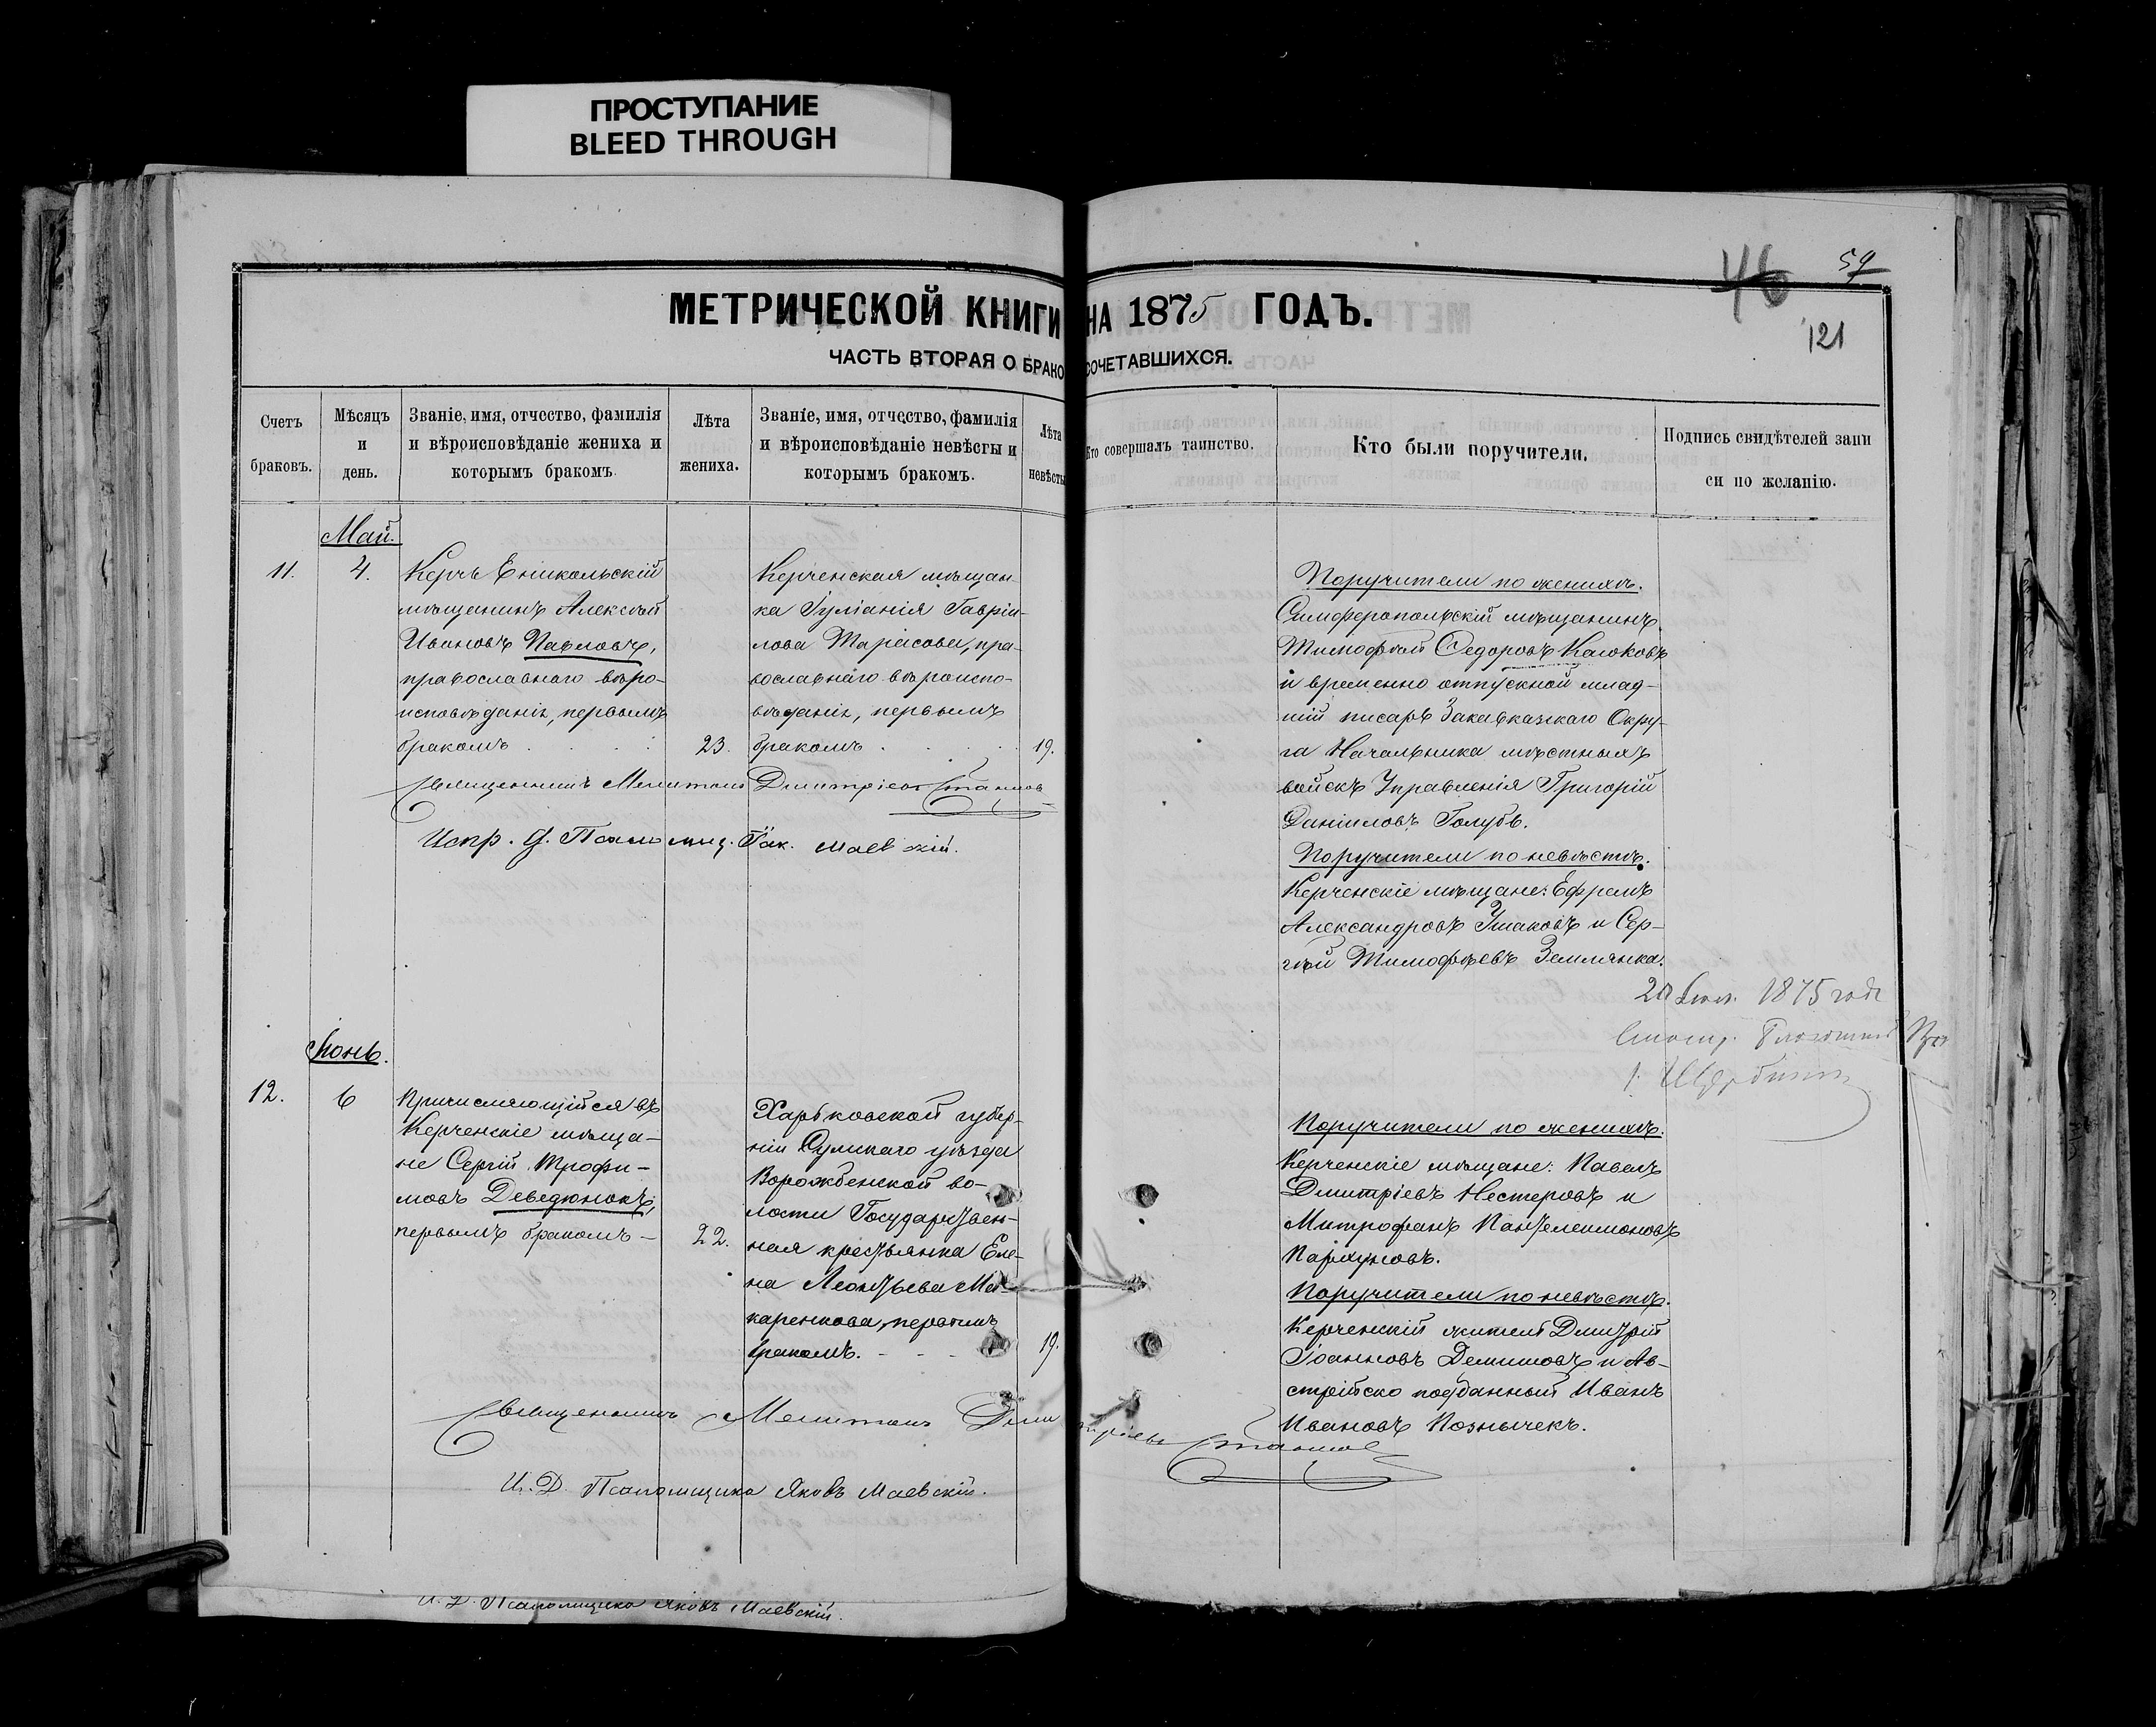 ПРОСТУПАНИЕ
BLEED THROUGH
46
59
121
МЕТРИЧЕСКОЙ КНИГИ НА 1875 ГОДЪ.
ЧАСТЬ ВТОРАЯ О БРАКОСОЧЕТАВШИХСЯ.
Счетъ
браковъ.
Мѣсяцъ
и
день.
Званіе, имя, отчество, фамилія
и вѣроисповѣданіе жениха и
которымъ бракомъ.
Лѣта
жениха.
Званіе, имя, отчество, фамилія
и вѣроисповѣданіе невѣсты и
которымъ бракомъ.
Лѣта
невѣсты
Кто совершалъ таинство.
Кто были поручители.
Подпись свидѣтелей запи
си по желанію.
Май.
11.
4.
Керчь Еникольскій
мѣщанинъ Алексѣй
Ивановъ Павловъ,
православнаго вѣро-
исповѣданія, первымъ
бракомъ
23.
Керченская мѣщан-
ка Іуліанія Гаврiи-
лова Тарасова, пра-
вославнаго вѣроиспо-
вѣданія, первымъ
бракомъ
19.
Священникъ Мелитонъ Дмитріевъ
Испр. д. Псаломщ. Як. Маевскій.
Поручители по женихѣ.
Симферопольскій мѣщанинъ
Тимофѣй Ѳедоровъ
и временно отпускной млад-
шій писарь Закавказкаго Окру-
га Начальника мѣстныхъ
войскъ Управленія Григорій
Даніиловъ Голубь.
Поручители по невѣстѣ.
Керченскіе мѣщане: Ефремъ
Александровъ Ушаковъ и Сер-
гѣй Тимофѣевъ Землянка.
1875 года
Іюнь.
12.
6
Причисляющійся въ
Керченскіе мѣща-
не Сергій Трофи-
мовъ Деведюкъ,
первымъ бракомъ -
22.
Харьковской губер-
ніи Сумскаго уѣзда
Ворожбенской во-
лости Государствен-
ная крестьянка Еле-
на Леонтьева Ма-
каренкова, первымъ
бракомъ.
19.
Священникъ Мелитонъ Дмитріевъ
И. Д. Псаломщика Яковъ Маевскій.
Поручители по женихѣ.
Керченскіе мѣщане: Павелъ
Дмитріевъ Нестеровъ и
Митрофанъ Пантелеимоновъ
Пархумовъ.
Поручители по невѣстѣ.
Керченскій житель Дмитрій
Іоанновъ Демишовъ и Ав-
стрійско подданный Иванъ
Ивановъ Познычекъ.
И. Д. Псаломщика Яковъ Маевскій.